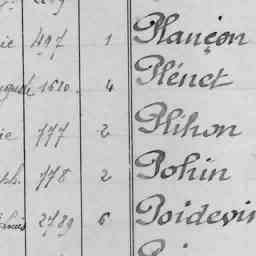 497 1 Plançon
1610. 4 Plénet
777 2 Plihon
778 2 Pohin
2789 6 Poidevin